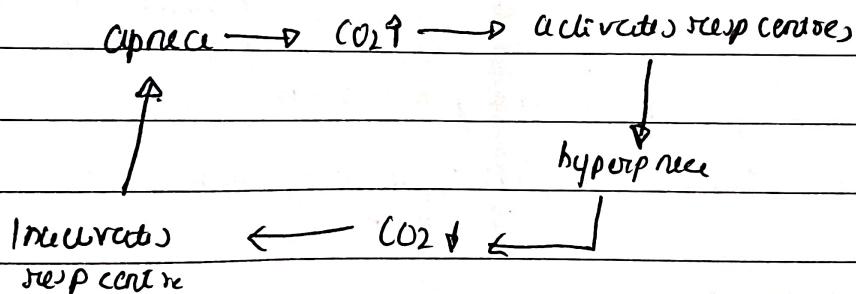 apnea → CO2↑ → activates resp centres
hyperpnea
Inactivates ← CO2 ↓ ←
resp centre